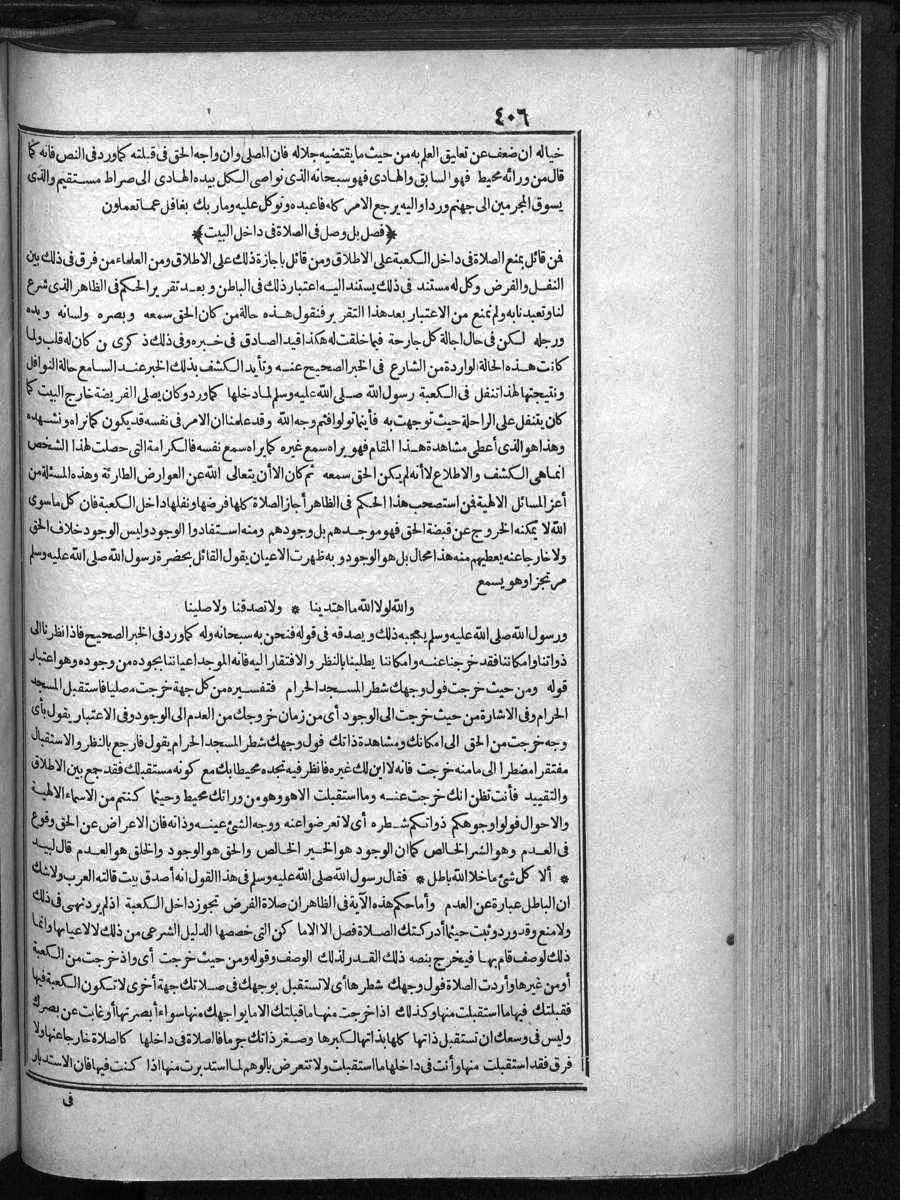 ٤٠٦
خياله ان ضعف عن تعليق العلم به من حيث ما يقتضيه جلاله فان المصلى وان واجه الحق فى قبلته كما ورد فى النص فانه كما
قال من ورائه محيط فهو السابق والهادى فهو سبحانه الذى نواصى الكل بيده الهادى الى صراط مستقيم والذى
يسوق المجرمين الى جهنم وردا واليه يرجع الامر كله فاعبده وتوكل عليه وما ربك بغافل عما تعملون
﴿فصل بل وصل فى الصلاة فى داخل البيت﴾
فمن قائل بمنع الصلاة فى داخل الكعبة على الاطلاق ومن قائل باجازة ذلك على الاطلاق ومن العلماء من فرق فى ذلك بين
النفل والفرض وكل له مستند فى ذلك يستند اليه اعتبار ذلك فى الباطن وبعد تقرير الحكم فى الظاهر الذى شرع
لنا وتعبدنا به ولم نمنع من الاعتبار بعد هذا التقرير فنقول هذه حالة من كان الحق سمعه وبصره ولسانه ويده
ورجله لكن فى حال اجالة كل جارحة فيما خلقت له هكذا قيد الصادق فى خبره وفى ذلك ذكرى لمن كان له قلب ولما
كانت هذه الحالة الواردة من الشارع فى الخبر الصحيح عنه وتأيد الكشف بذلك الخبر عند السامع حالة النوافل
ونتيجتها لهذا تنفل فى الكعبة رسول الله صلى الله عليه وسلم لما دخلها كما ورد وكان يصلى الفريضة خارج البيت كما
كان يتنفل على الراحلة حيث توجهت به فأينما تولوا فثم وجه الله وقد علمنا ان الامر فى نفسه قد يكون كما نراه ونشهده
وهذا هو الذى أعطى مشاهدة هذا المقام فهو يراه سمع غيره كما يراه سمع نفسه فالكرامة التى حصلت لهذا الشخص
انما هى الكشف والاطلاع لا أنه لم يكن الحق سمعه ثم كان الآن يتعالى الله عن العوارض الطارئة وهذه المسئلة من
أعز المسائل الالهية فمن استصحب هذا الحكم فى الظاهر أجاز الصلاة كلها فرضها ونفلها داخل الكعبة فان كل ما سوى
الله لا يمكنه الخروج عن قبضة الحق فهو موجدهم بل وجودهم ومنه استفادوا الوجود وليس الوجود خلاف الحق
ولا خارجا عنه يعطيهم منه هذا محال بل هو الوجود وبه ظهرت الاعيان يقول القائل بحضرة رسول الله صلى الله عليه وسلم
مرتجزا وهو يسمع
والله لولا الله ما اهتدينا * ولا تصدقنا ولا صلينا
ورسول الله صلى الله عليه وسلم يعجبه ذلك ويصدقه فى قوله فنحن به سبحانه وله كما ورد فى الخبر الصحيح فاذا نظرنا الى
ذواتنا وامكاننا فقد خرجنا عنه وامكاننا يطلبنا بالنظر والافتقار اليه فانه الموجد اعياننا بجوده من وجوده وهو اعتبار
قوله ومن حيث خرجت فول وجهك شطر المسجد الحرام فتفسيره من كل جهة خرجت مصليا فاستقبل المسجد
الحرام وفى الاشارة من حيث خرجت الى الوجود أى من زمان خروجك من العدم الى الوجود وفى الاعتبار يقول بأى
وجه خرجت من الحق الى امكانك ومشاهدة ذاتك فول وجهك شطر المسجد الحرام يقول فارجع بالنظر والاستقبال
مفتقرا مضطرا الى ما منه خرجت فانه لا اين لك غيره فانظر فيه تجده محيطا بك مع كونه مستقبلك فقد جمع بين الاطلاق
والتقييد فأنت تظن انك خرجت عنه وما استقبلت الا هو وهو من ورائك محيط وحيثما كنتم من الاسماء الالهية
والاحوال فولوا وجوهكم ذواتكم شطره أى لا تعرضوا عنه ووجه الشئ عينه وذاته فان الاعراض عن الحق وقوع
فى العدم وهو الشر الخالص كما ان الوجود هو الخير الخالص والحق هو الوجود والخلق هو العدم قال لبيد
* ألا كل شئ ما خلا الله باطل * فقال رسول الله صلى الله عليه وسلم فى هذا القول انه أصدق بيت قالته العرب ولا شك
ان الباطل عبارة عن العدم وأما حكم هذه الآية فى الظاهر ان صلاة الفرض تجوز داخل الكعبة اذ لم يرد نهى فى ذلك
ولا منع وقد ورد وثبت حيثما أدركتك الصلاة فصل الا الاماكن التى خصصها الدليل الشرعى من ذلك لا لاعيانها وانما
ذلك لوصف قام بها فيخرج بنصه ذلك القدر لذلك الوصف وقوله ومن حيث خرجت أى واذ خرجت من الكعبة
أو من غيرها وأردت الصلاة فول وجهك شطرها أى لا تستقبل بوجهك فى صلاتك جهة أخرى لا تكون الكعبة فيها
فقبلتك فيها ما استقبلت منها وكذلك اذا خرجت منها ما قبلتك الا ما يواجهك منها سواء أبصرتها أو غابت عن بصرك
وليس فى وسعك ان تستقبل ذاتها كلها بذاتك لكبرها وصغر ذاتك جرما فالصلاة فى داخلها كالصلاة خارجا عنها ولا
فرق فقد استقبلت منها وأنت فى داخلها ما استقبلت ولا تتعرض بالوهم لما استدبرت منها اذا كنت فيها فان الاستدبار
فى